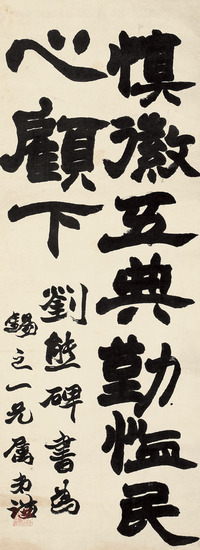 慎徽五典勤恤民
心顧下
劉熊碑書為
錫之一兄屬弟